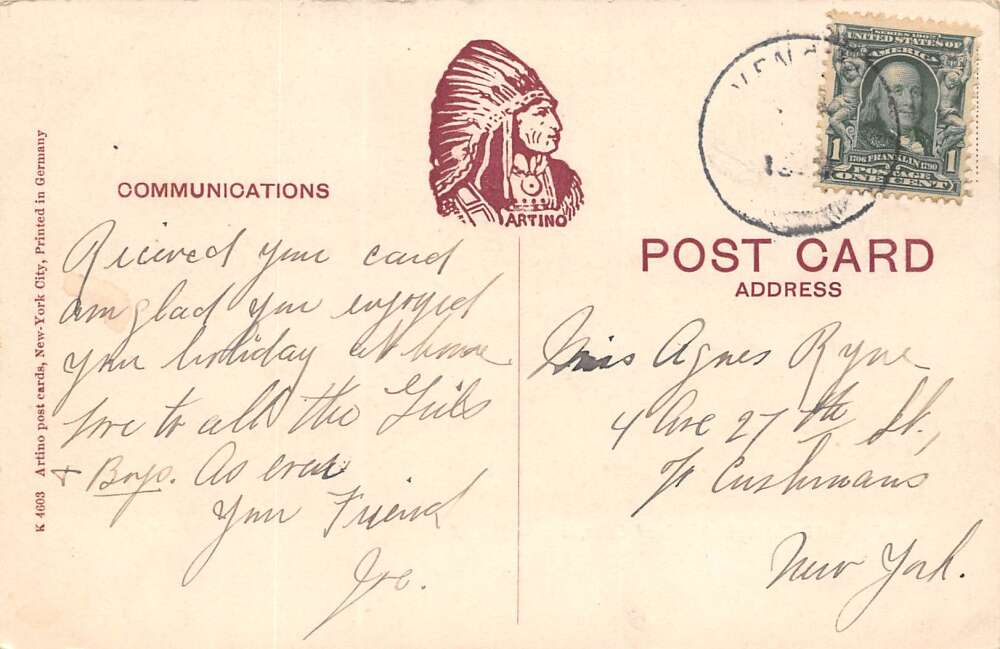 K 4603 Artino post cards, New-York City, Printed in Germany
COMMUNICATIONS
ARTINO
SERIES 1902
UNITED STATES OF
AMERICA
1 1706 FRANKLIN 1790 1
POSTAGE
ONE CENT
POST CARD
ADDRESS
Recieved your card
am glad you enjoyed
your holiday at home
love to all the Girls
+ Boys. As ever
Your Friend
Joe.
Miss Agnes Ryne
4 Ave 27th St.,
℅ Cushmans
New York.